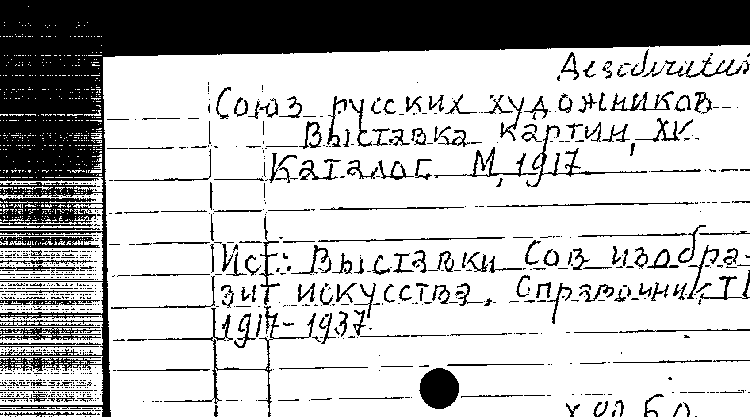 Desideratum
Союз русских художников
Выставка картин, XV
Каталог. М, 1917
Ист: Выставки Сов изобра-
зит искусства. Справочник, Т I
1917-1937